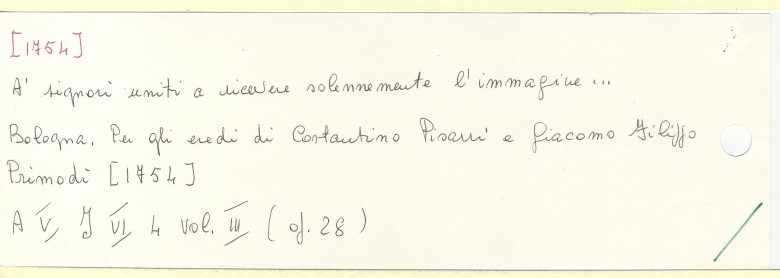 [1754]
A' signori uniti a ricevere solennemente l'immagine...
Bologna. Per gli eredi di Costantino Pisarri e Giacomo Filippo
Primodì [1754]
A V, I VI 4 vol. III ( of. 28 )